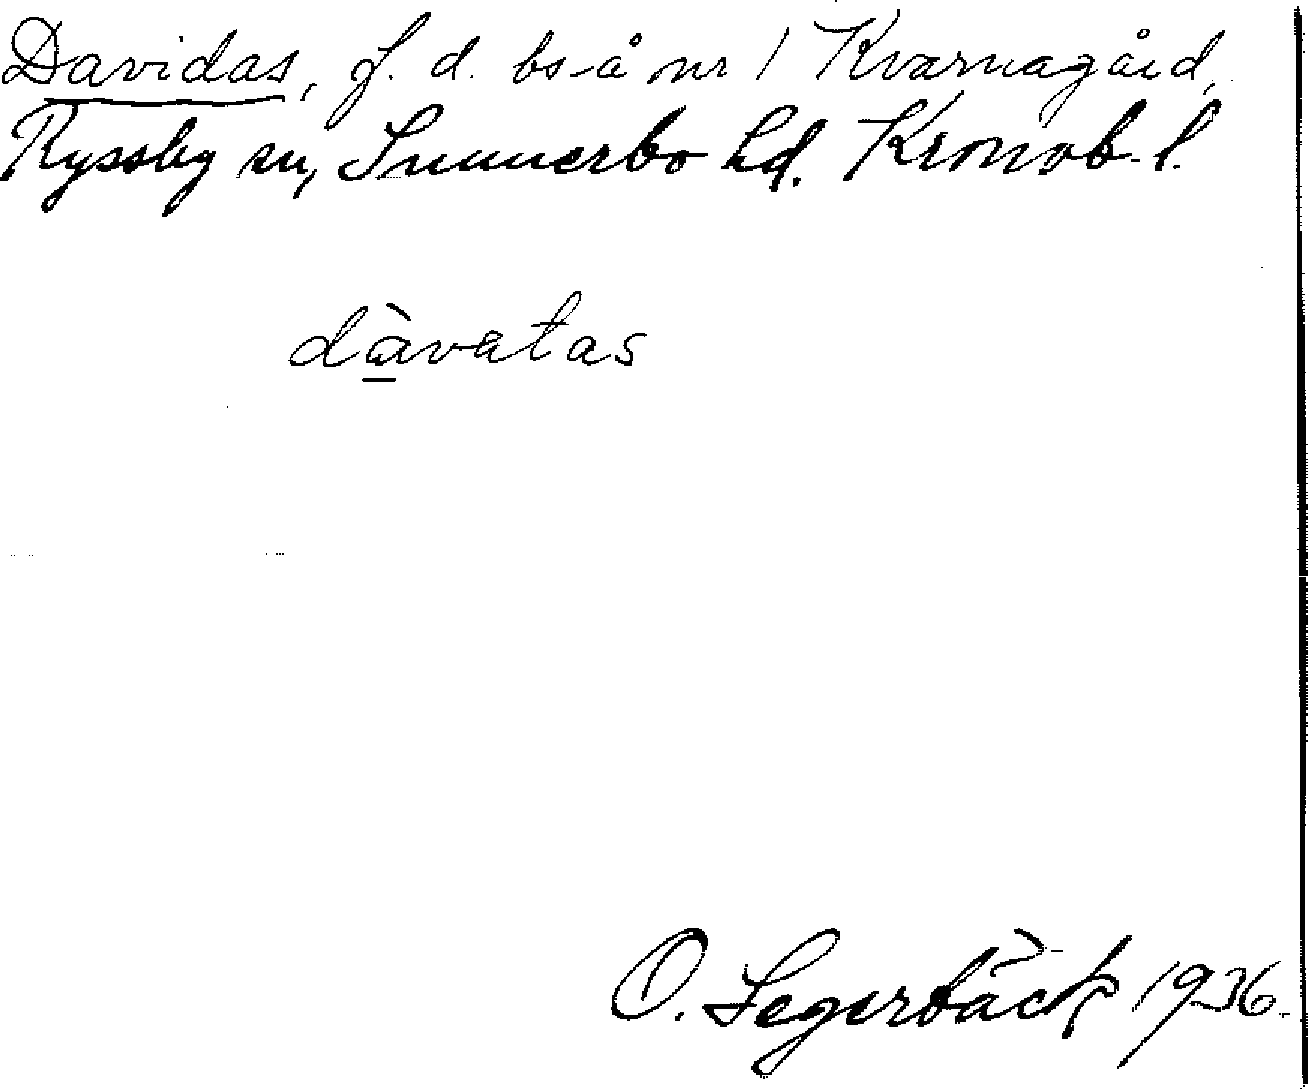 Davidas, f. d. bs å nr 1 Kvarnagård,
Ryssby sn, Sunnerbo hd. Kronob. l.
dàvatas
O. Segerbäck 1936.